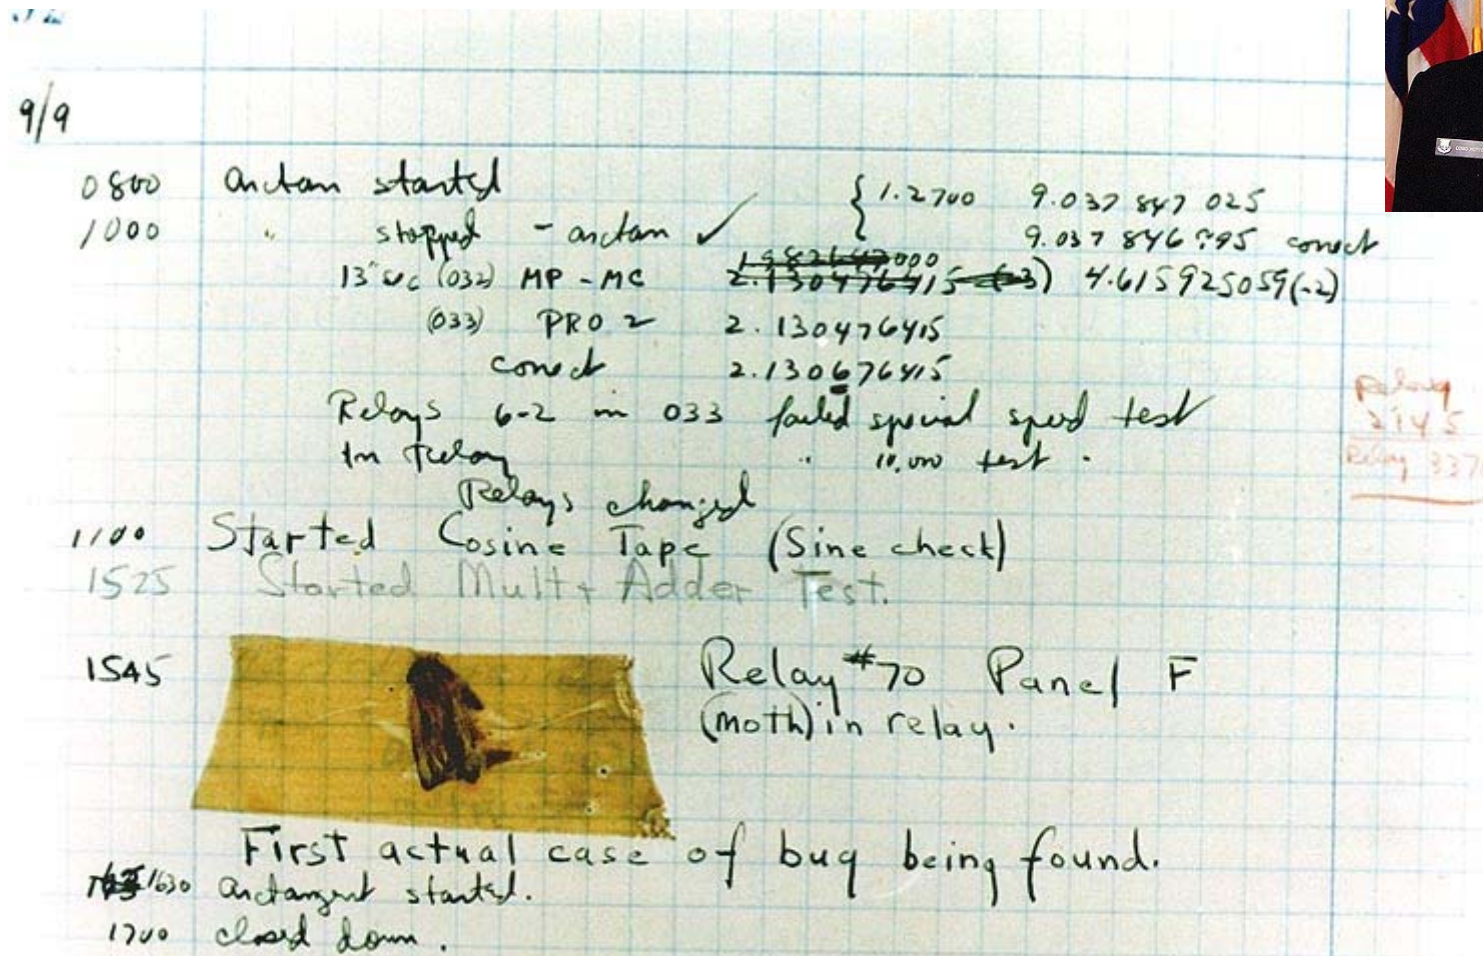 9/9
0800 arctan started { 1.2700 9.037 847 025
1000 " stopped - arctan ✓ 9.037 846 995 correct
13" sec (032) MP - MC 2.130476415 (-3) 4.615925059(-2)
(033) PRO 2 2.130476415
correct 2.130676415
Relays 6-2 in 033 failed special speed test
In Relay " 10,000 test .
Relays changed
Relay
2145
Relay 337
1100 Started Cosine Tape (Sine check)
1525 Started Mult + Adder Test.
1545 Relay #70 Panel F
(moth) in relay.
First actual case of bug being found.
1630 arctangent started.
1700 closed down.